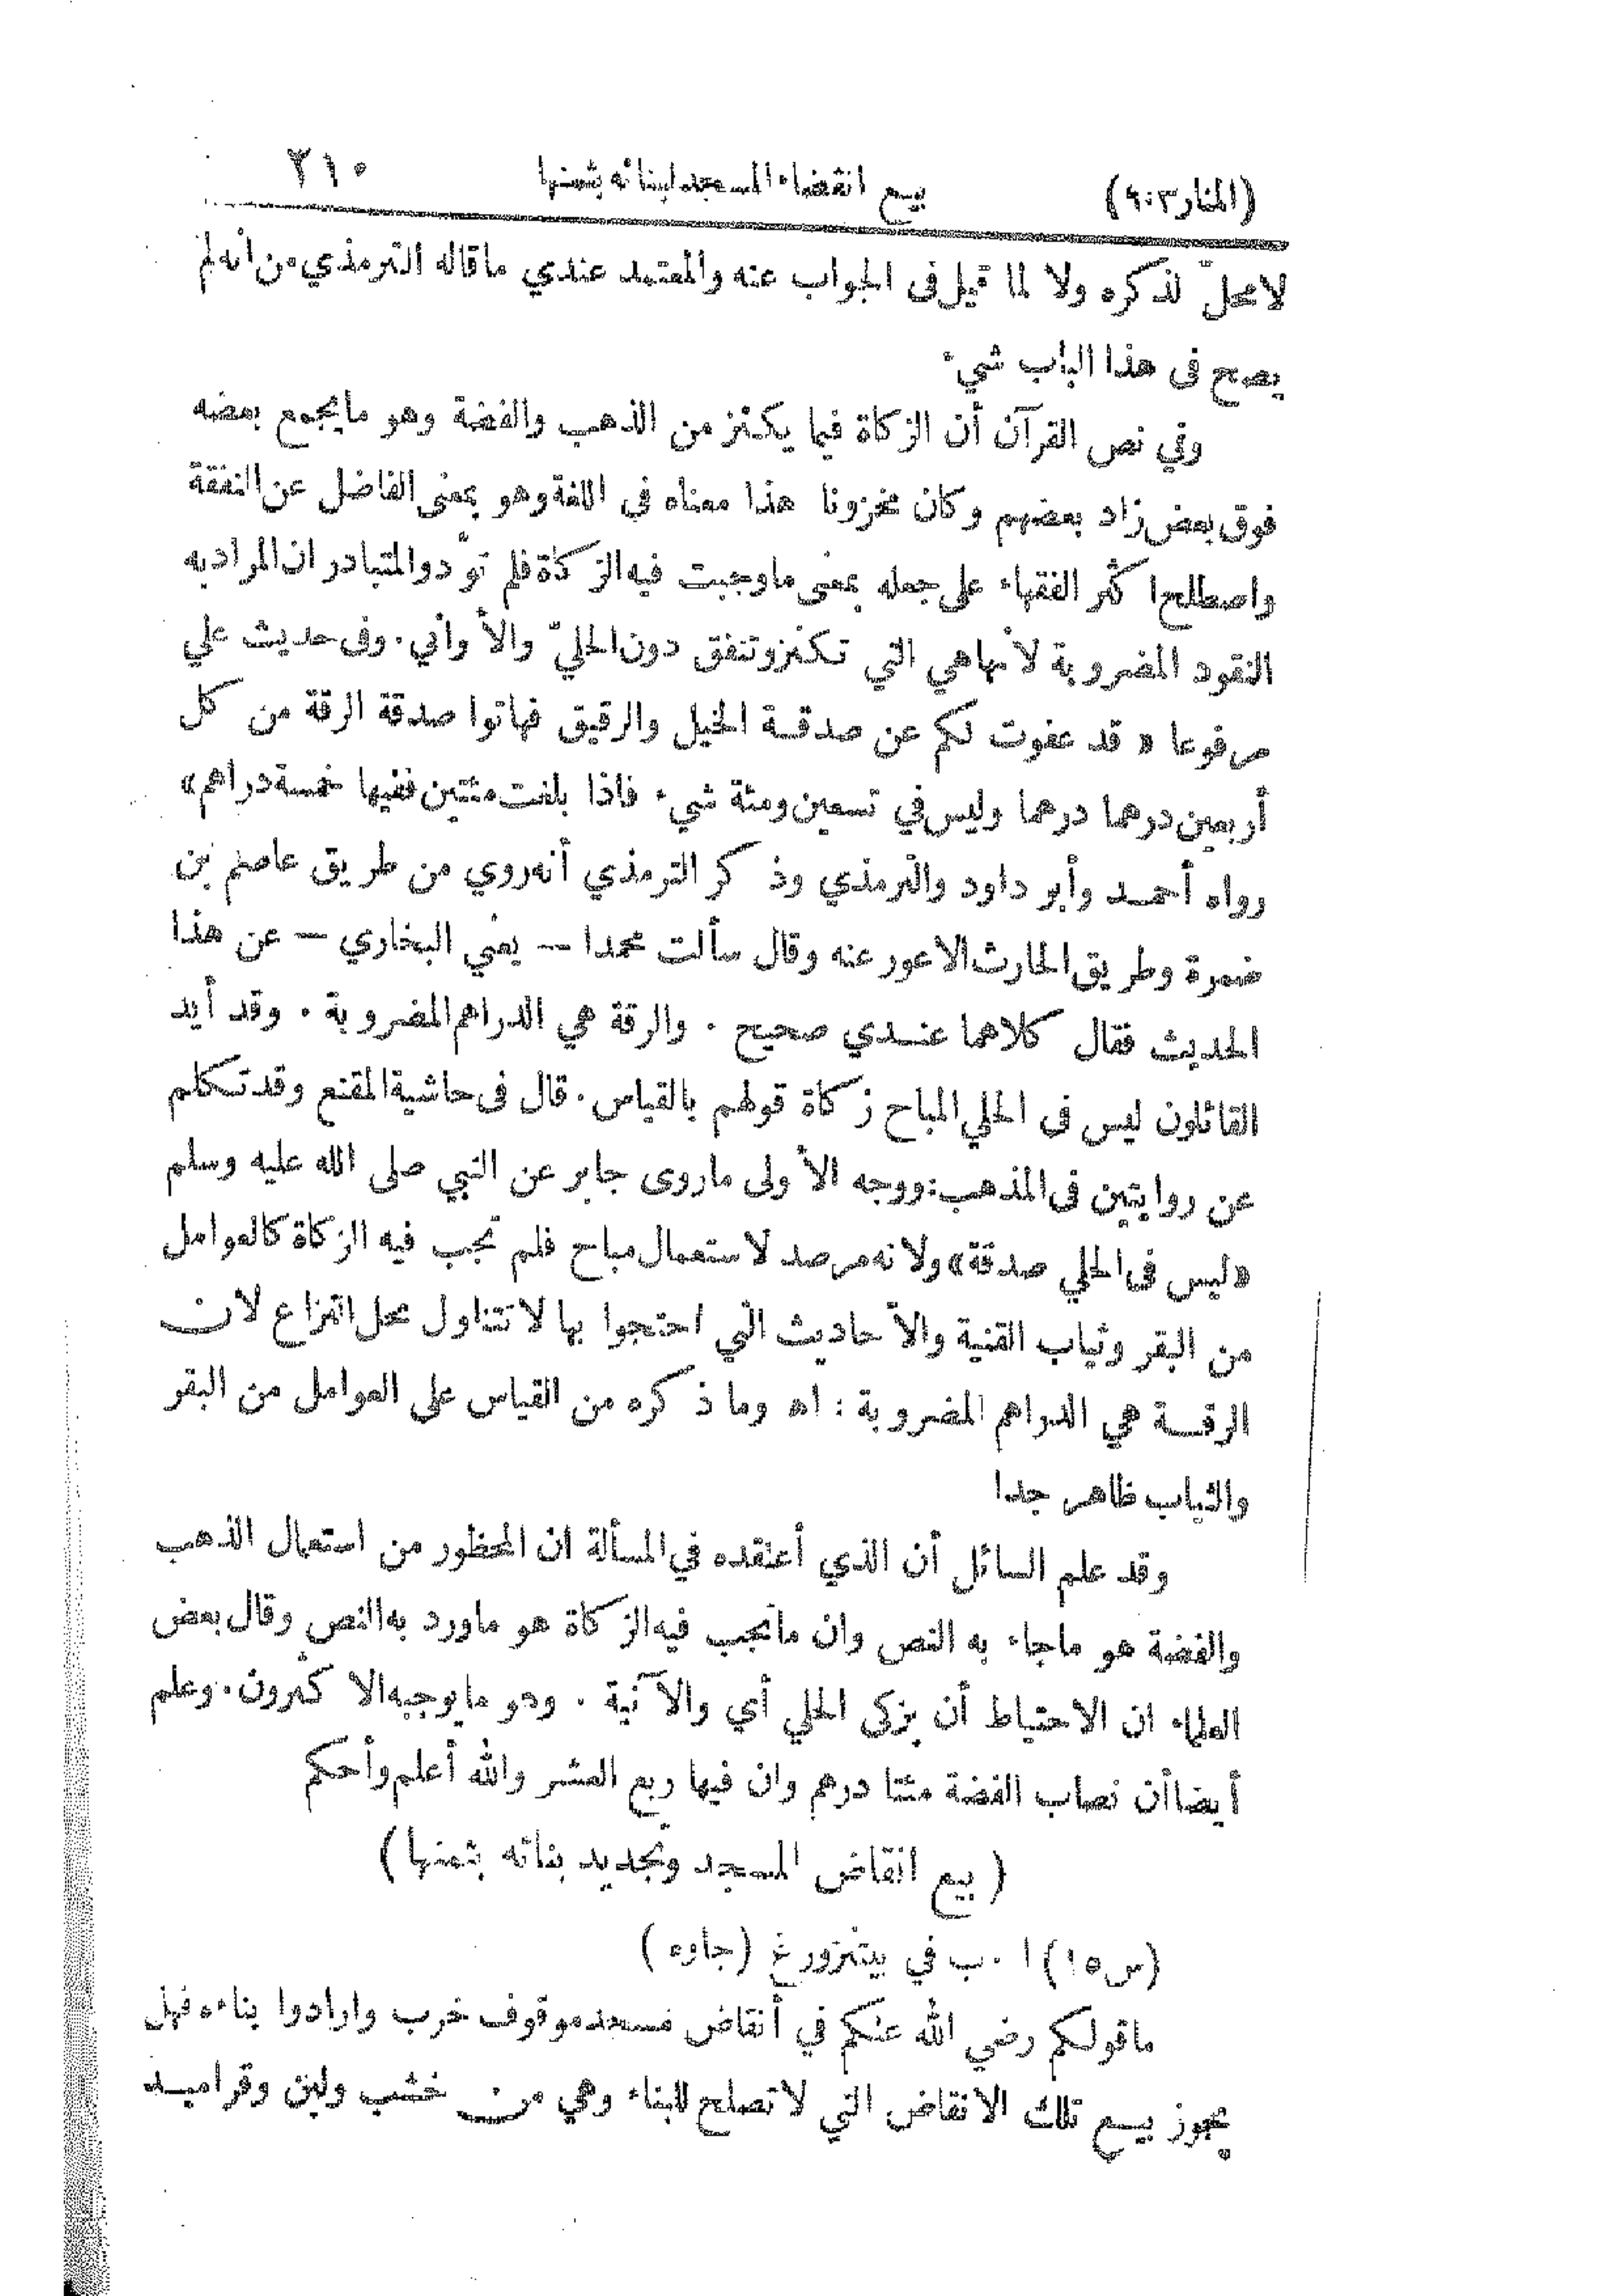 (المنار ٣:٩) بيع انقضاء المسجد لبنائه بثمنها ٢١٠
لا محلّ لذكره ولا لما قيل في الجواب عنه والمعتمد عندي ما قاله الترمذي من أنه لم
يصح في هذا الباب شيء
وفي نص القرآن أن الزكاة فيما يكنز من الذهب والفضة وهو ما يجمع بعضه
فوق بعض زاد بعضهم وكان مخزونا هذا معناه في اللغة وهو بمعنى الفاضل عن النفقة
واصطلح اكثر الفقهاء على جعله بمعنى ما وجبت فيه الزكاة فلم تؤد والمتبادر ان المراد به
النقود المضروبة لأنها هي التي تكنز وتنفق دون الحليّ والأواني . وفي حديث علي
مرفوعا « قد عفوت لكم عن صدقة الخيل والرقيق فهاتوا صدقة الرقة من كل
أربعين درهما درهما وليس في تسعين ومئة شيء فاذا بلغت مئتين ففيها خمسة دراهم »
رواه أحمد وأبو داود والترمذي وذكر الترمذي أنه روي من طريق عاصم بن
ضمرة وطريق الحارث الاعور عنه وقال سألت محمدا — يعني البخاري — عن هذا
الحديث فقال كلاهما عندي صحيح . والرقة هي الدراهم المضروبة . وقد أيد
القائلون ليس في الحلي المباح زكاة قولهم بالقياس . قال في حاشية المقنع وقد تكلم
عن روايتين في المذهب : ووجه الأولى ما روى جابر عن النبي صلى الله عليه وسلم
« ليس في الحلي صدقة » ولانه مرصد لاستعمال مباح فلم تجب فيه الزكاة كالعوامل
من البقر وثياب القنية والأحاديث التي احتجوا بها لا تتناول محل النزاع لان
الرقة هي الدراهم المضروبة : اه وما ذكره من القياس على العوامل من البقر
والثياب ظاهر جدا
وقد علم السائل أن الذي أعتقده في المسألة ان المحظور من استعمال الذهب
والفضة هو ما جاء به النص وان ما تجب فيه الزكاة هو ما ورد به النص وقال بعض
العلماء ان الاحتياط أن يزكى الحلي أي والآنية . ودو ما يوجبه الاكثرون . وعلم
أيضا أن نصاب الفضة مئتا درهم وان فيها ربع العشر والله أعلم وأحكم
( بيع انقاض المسجد وتجديد بنائه بثمنها )
(س ١٥) ا . ب في بيتنزورغ (جاوه)
ما قولكم رضي الله عنكم في أنقاض مسجد موقوف خرب وارادوا بناءه فهل
يجوز بيع تلك الانقاض التي لا تصلح للبناء وهي من خشب ولبن وقراميد